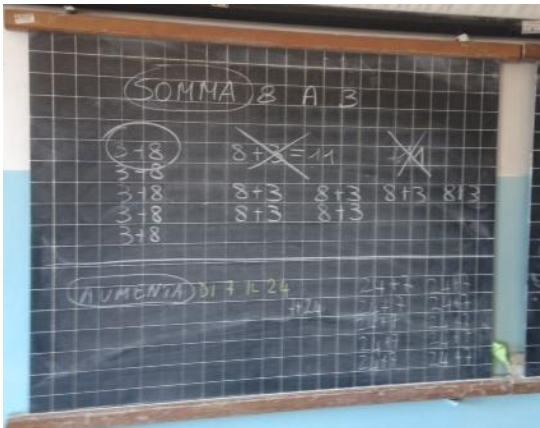 SOMMA 8 A 3
3+8 8+3=11
3+8
3+8 8+3 8+3 8+3 8+3
3+8 8+3 8+3
3+8
AUMENTA DI 7 IL 24
24+7 24+7
24+7 24+7
24+7
24+7 24+7
24+7 24+7